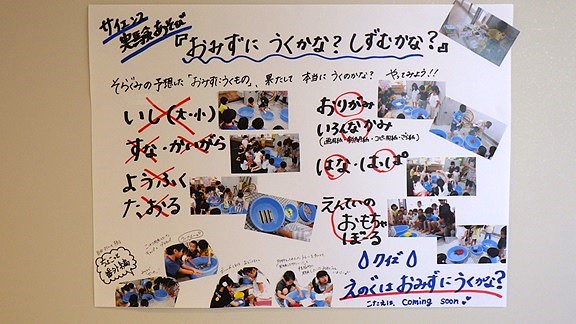 サイエンス
実験あそび
『おみずに うくかな？しずむかな？』
そらぐみの予想した「おみずにうくもの」、果たして 本当に うくのかな？ やってみよう！！
いし（大・小）
すな・かいがら
ようふく
たおる
おりがみ
いろんなかみ
はな・はっぱ
えんていの
おもちゃ
ぼーる
クイズ
えのぐはおみずにうくかな？
こたえは、coming soon
ちょっと
番外編